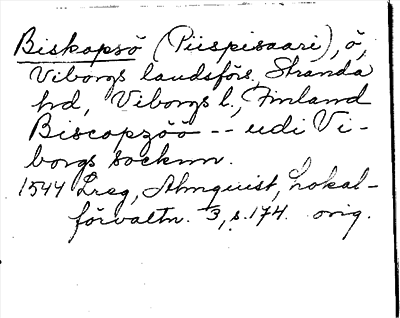 Biskopsö (Piispisaari), ö,
Viborgs landsförs. Stranda
hd, Viborgs l., Finland
Biscopzöö -- udi Vi-
borgs socknn.
1544 Lreg, Almquist, Lokal-
förvaltn. 3, s. 174. orig.